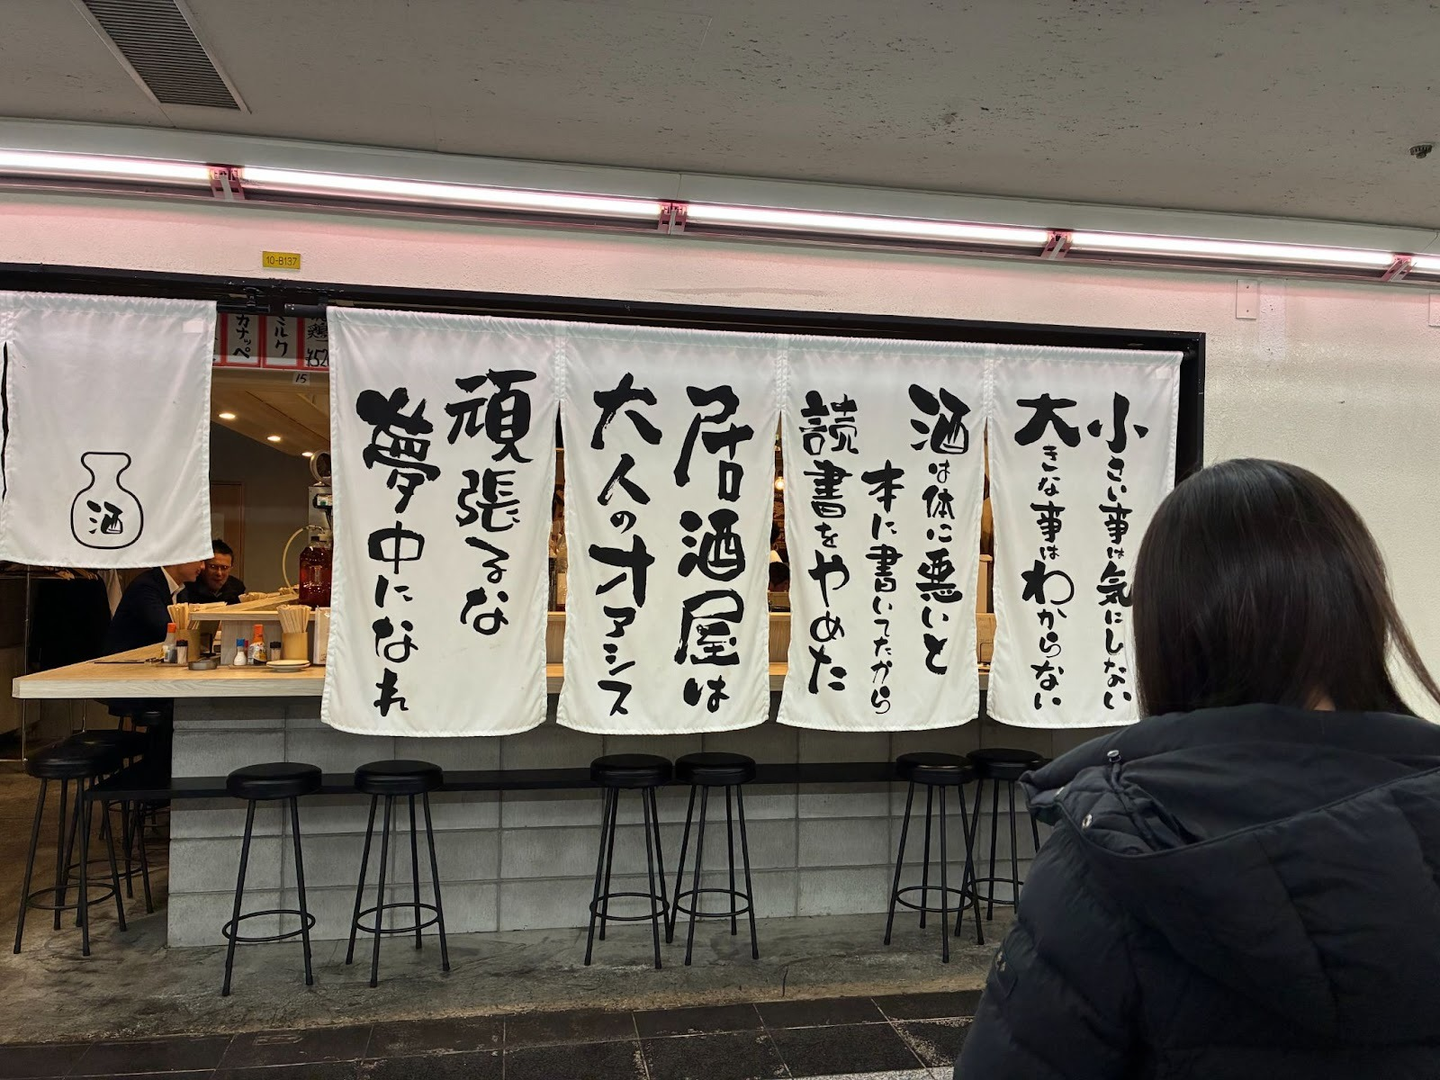 小さい事は気にしない
大きな事はわからない
酒は体に悪いと
本に書いてたから
読書をやめた
居酒屋は
大人のオアシス
頑張るな
夢中になれ
酒
10-B137
カナッペ
ミルク
15